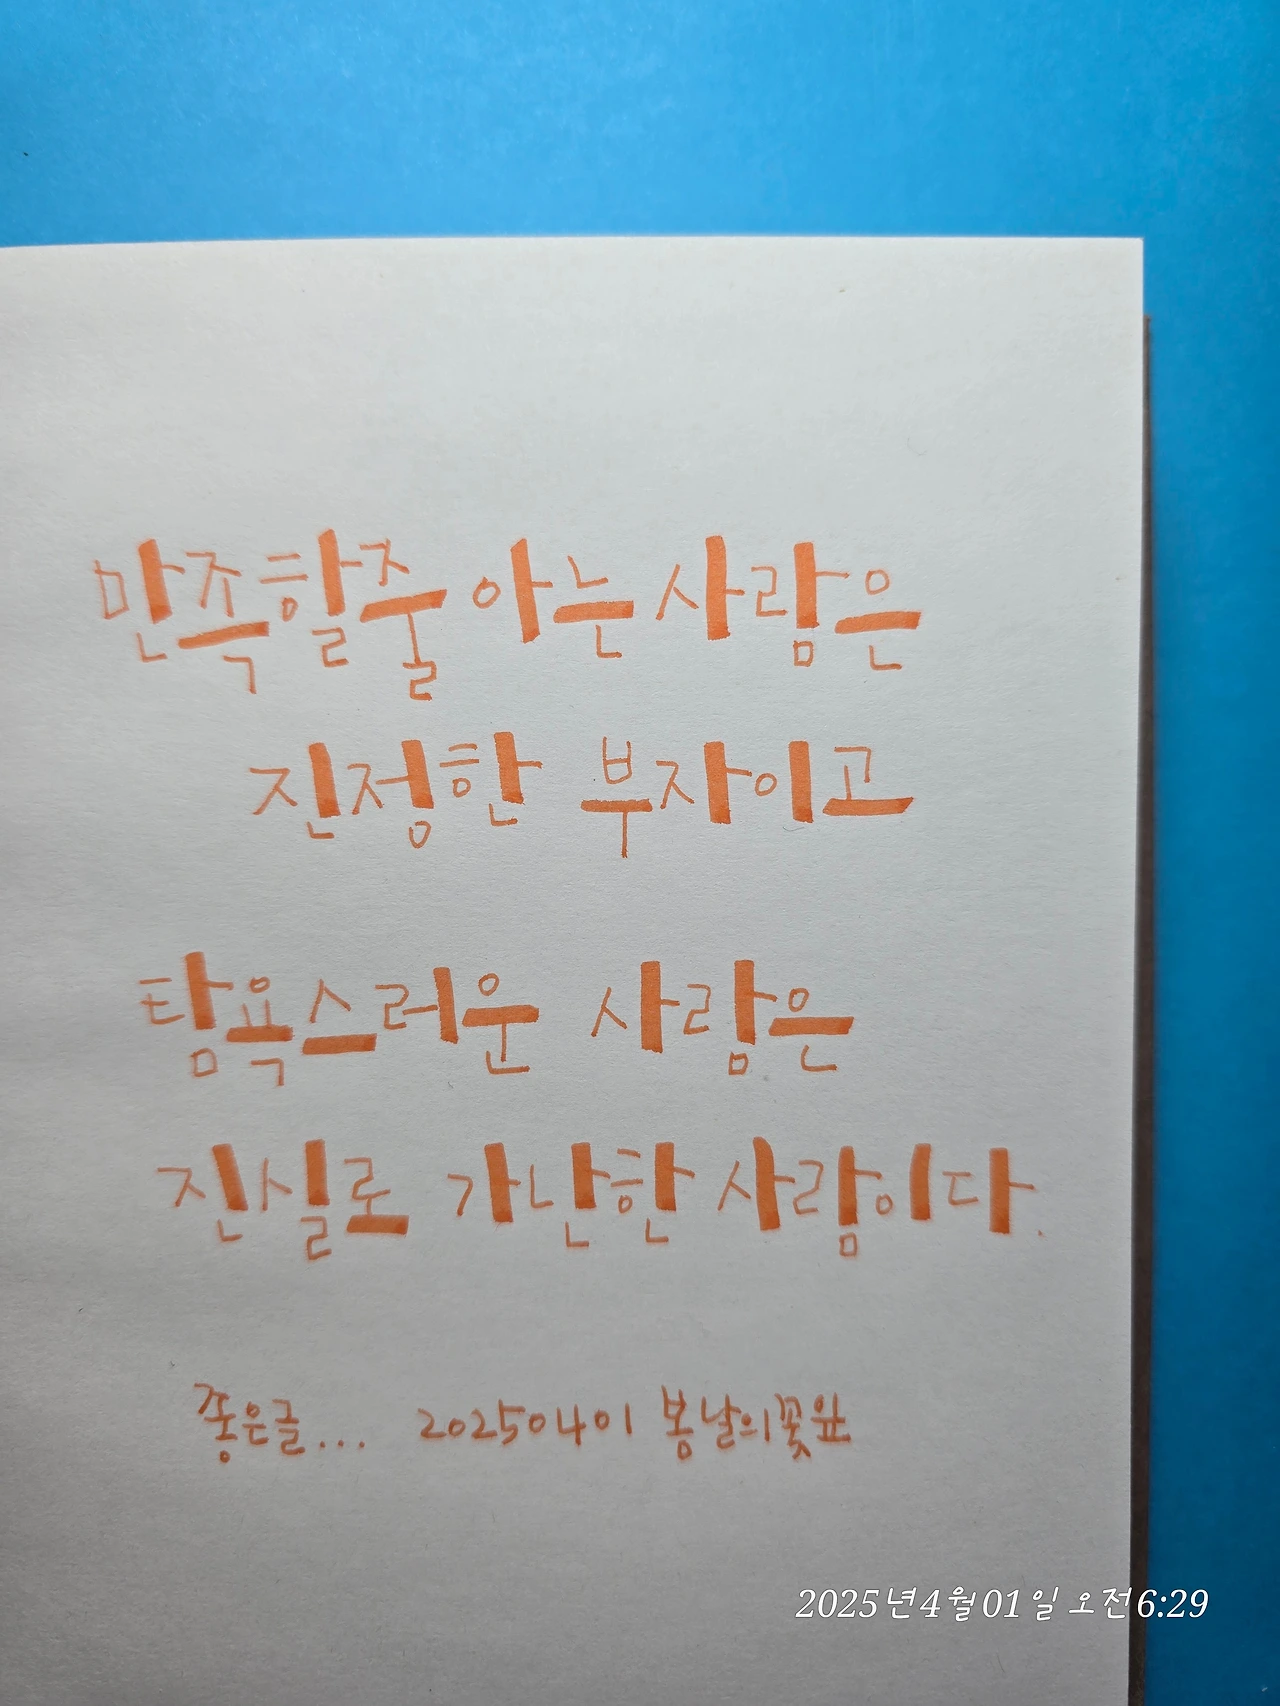 만족할줄 아는 사람은
진정한 부자이고
탐욕스러운 사람은
진실로 가난한 사람이다.
좋은글... 20250401 봄날의꽃잎
2025년 4월 01일 오전 6:29